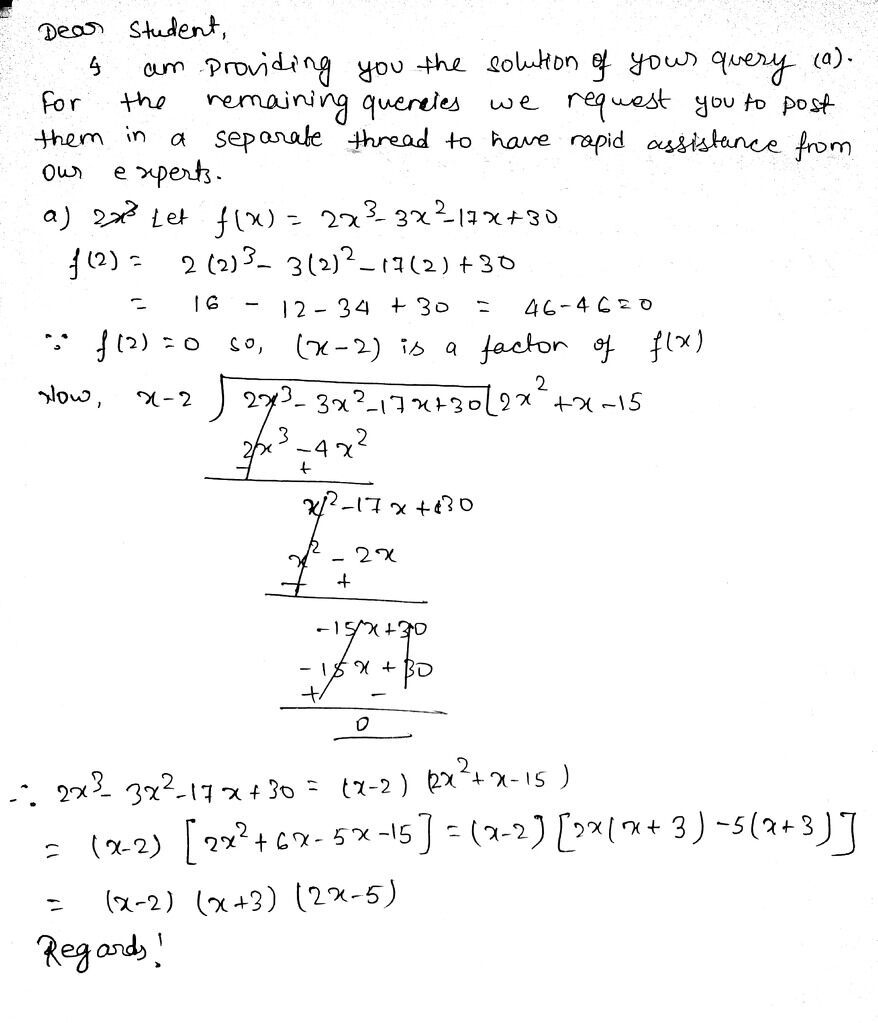 Dear Student,
I am providing you the solution of your query (a).
For the remaining quereies we request you to post
them in a separate thread to have rapid assistance from
our experts.
a) 2x³ Let f(x) = 2x³- 3x²-17x+30
f(2) = 2(2)³- 3(2)²-17(2)+30
= 16 - 12 - 34 + 30 = 46-46=0
∵ f(2) = 0 so, (x-2) is a factor of f(x)
Now, x-2 ) 2x³- 3x²-17x+30 ( 2x²+x-15
2x³ -4x²
- +
x²-17x+30
x² - 2x
- +
-15x+30
-15x+30
+ -
0
∴ 2x³- 3x²-17x+30 = (x-2) (2x²+x-15)
= (x-2) [2x²+6x-5x-15] = (x-2) [2x(x+3)-5(x+3)]
= (x-2) (x+3) (2x-5)
Regards!